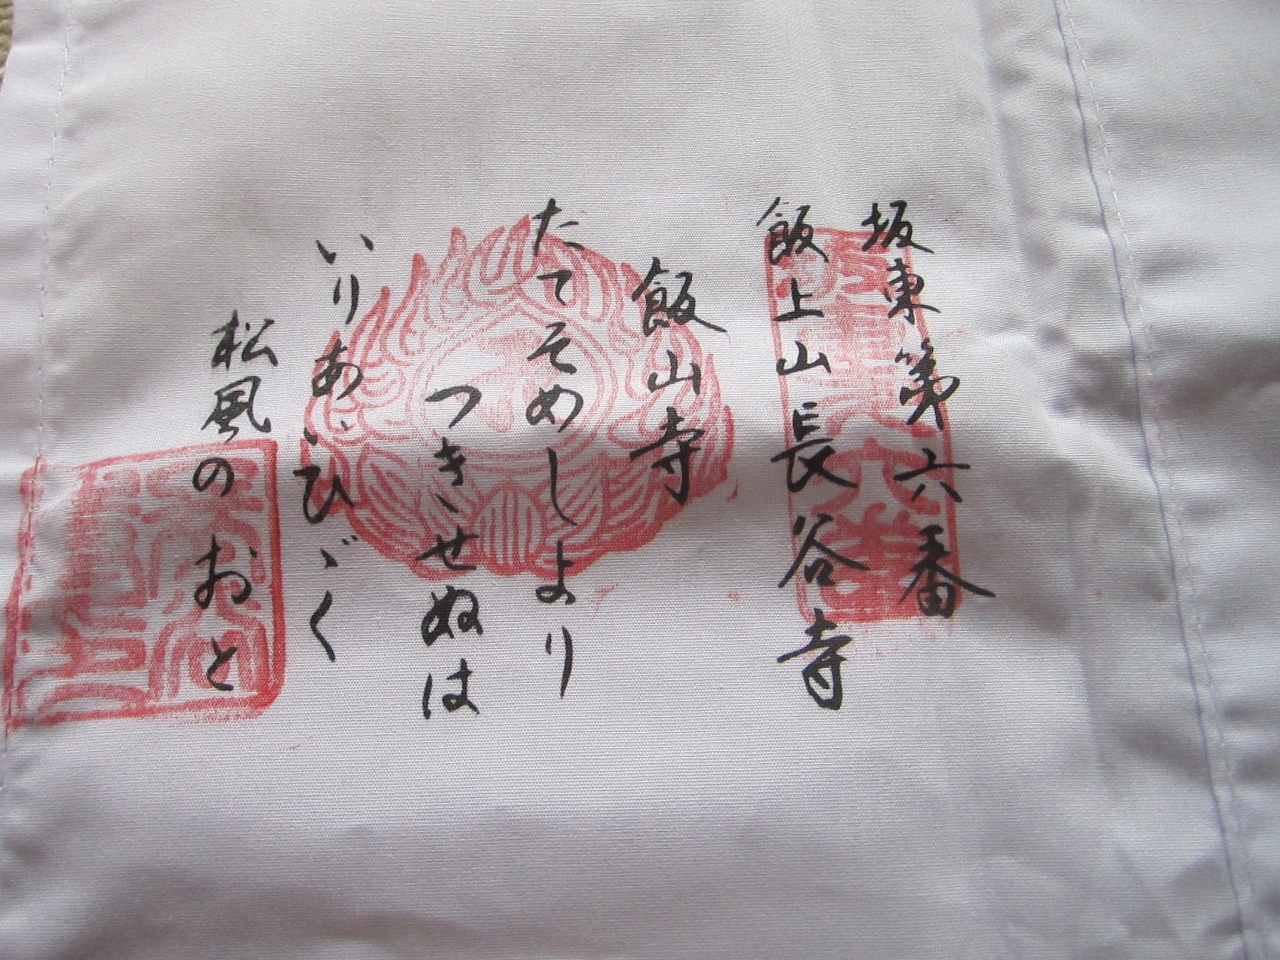 坂東第六番
飯上山長谷寺
飯山寺
たてそめしより
つきせぬは
いりあひゞく
松風のおと